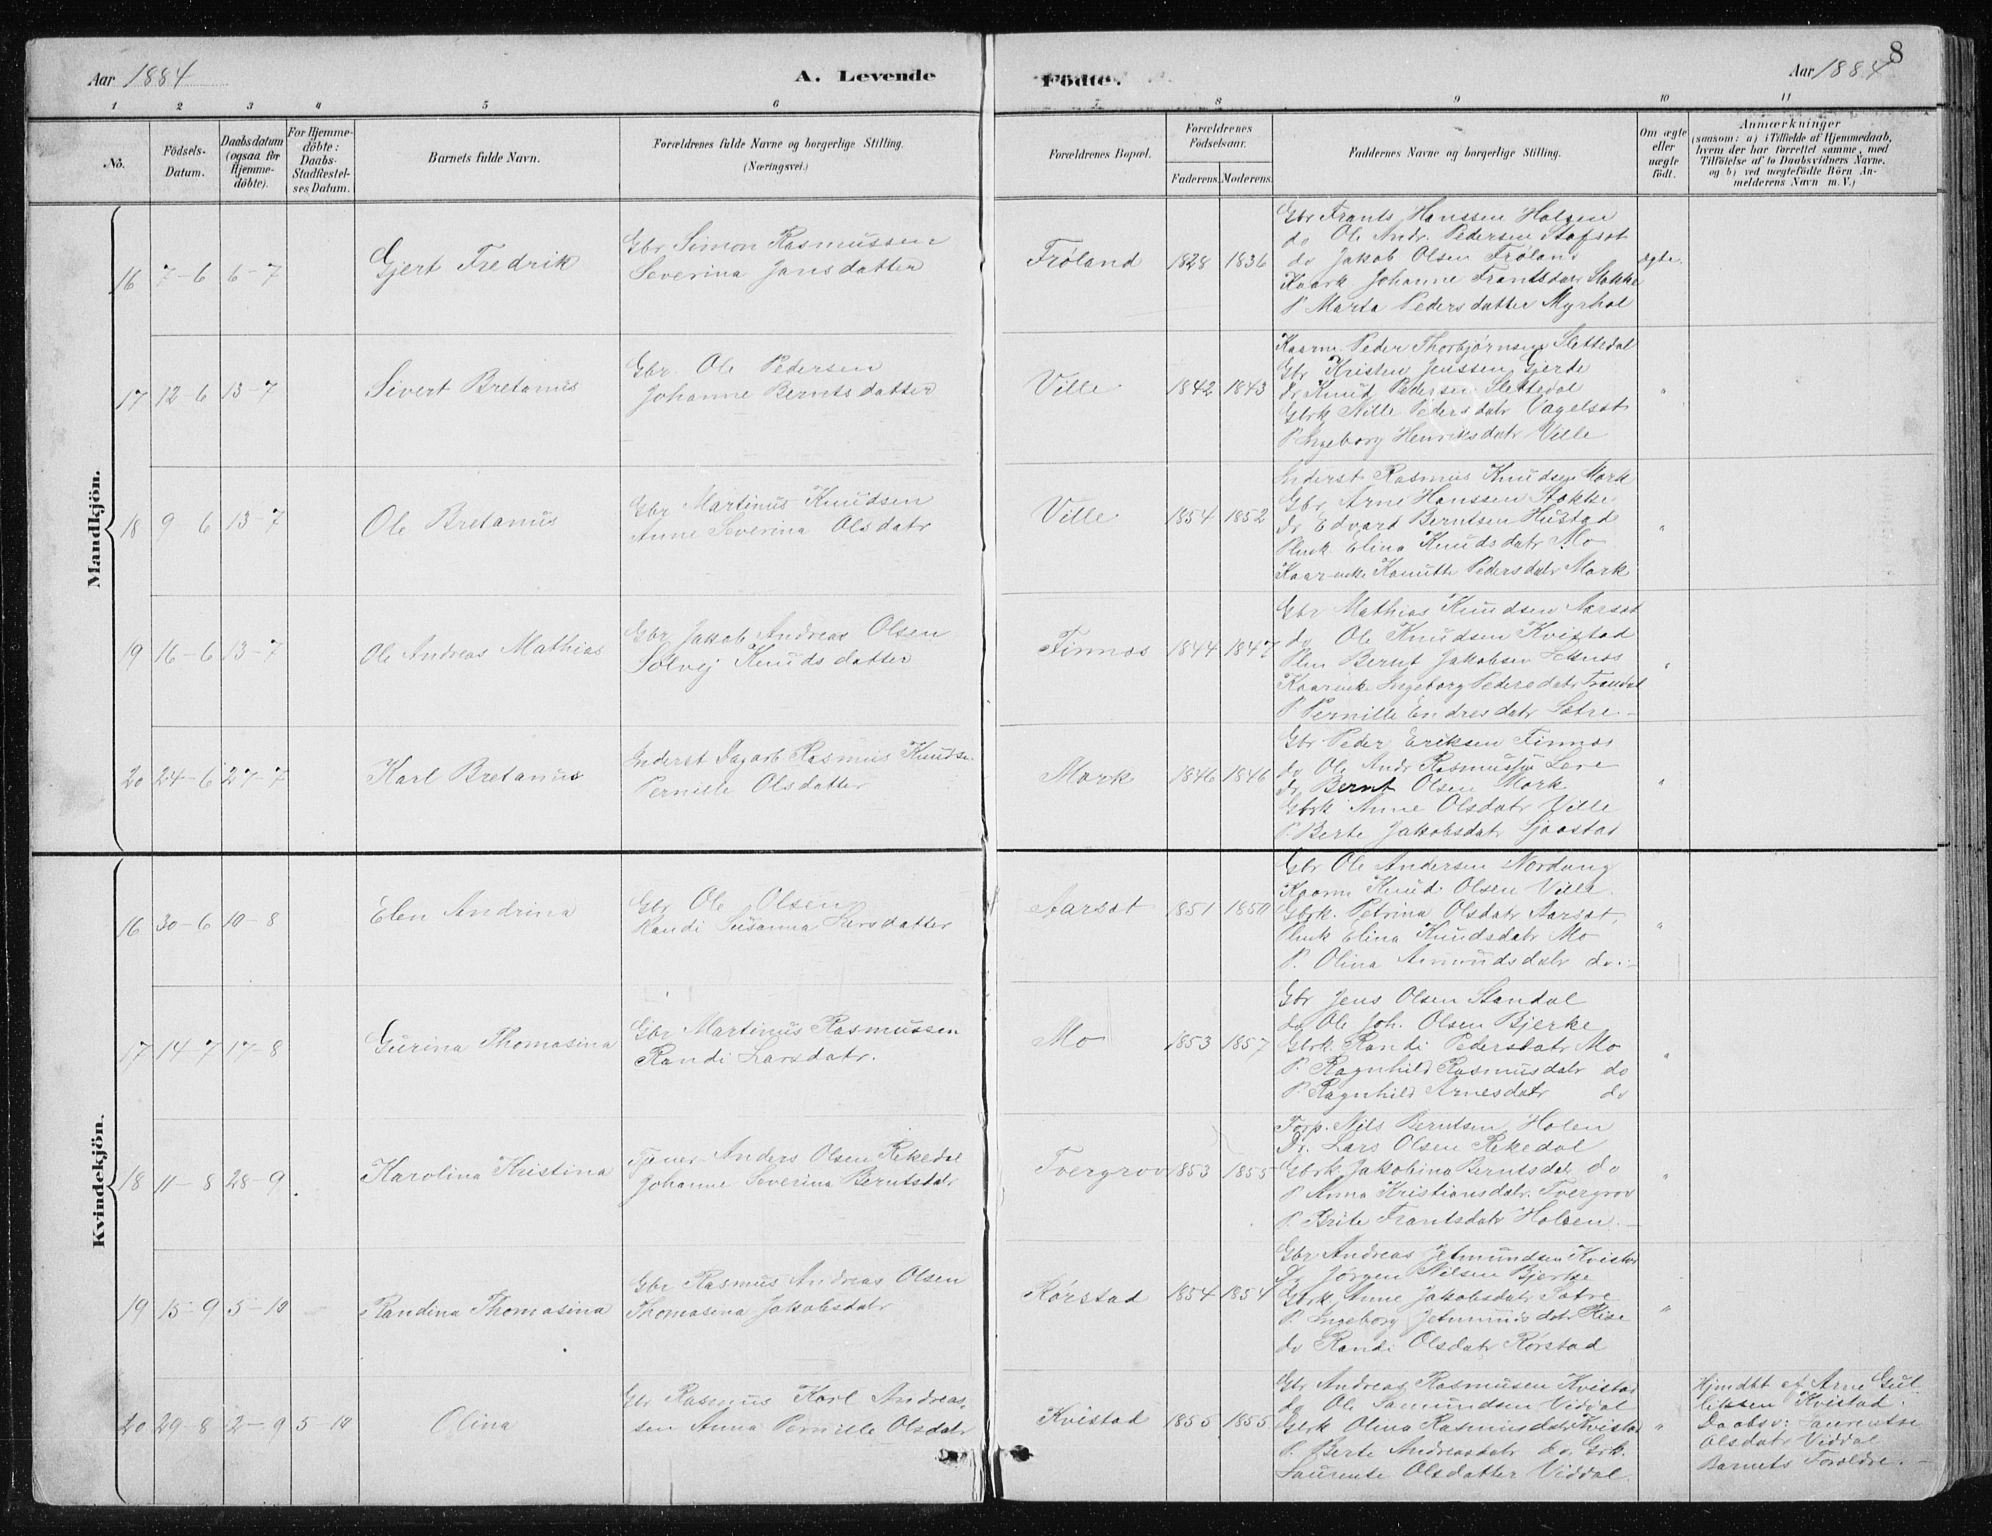 8
Aar 1884
A. Levende
Födte.
Aar 1884
1 2 3 4 5 6 7 8 9 10 11
No.
Födsels-
Datum.
Daabsdatum
(ogsaa for
Hjemme-
döbte).
For Hjemme-
döbte:
Daabs-
Stadfæstel-
ses Datum.
Barnets fulde Navn.
Forældrenes fulde Navne og borgerlige Stilling.
(Næringsvei.)
Forældrenes Bopæl.
Forældrenes
Födselsaar.
Faderens. Moderens.
Faddernes Navne og borgerlige Stilling.
Om ægte
eller
uægte
födt.
Anmærkninger
(saasom: a) i Tilfælde af Hjemmedaab,
hvem der har forrettet samme, med
Tilföielse af to Daabsvidners Navne.
og b) ved uægtefödte Börn An-
melderens Navn m. V.)
Mandkjön.
16 7-6 6-7
Gjert Fredrik
Gbr Simon Rasmussen
Severina Jansdatter
Frøland 1828 1836
Gbr Frants Hanssen Holsen
do Ole Andr. Pedersen
do Jakob Olsen Frøland
Johanne Frantsdatr Stokke
P. Marta Pedersdatter Myrhol
ægte
17 12-6 13-7
Sivert Bretanus
Gbr. Ole Pedersen
Johanne Berntsdatter
Ville 1842 1843
Kaarm Peder Thorbjørnsen Slettedal
Gbr Kristen Jenssen Gjerde
Dr Knud Pedersen Slettedal
Gbrk Nille Pedersdatr
P. Ingeborg Henriksdatr Ville
"
18 9-6 13-7
Ole Bretanus
Gbr Martinus Knudsen
Anne Severina Olsdatr
Ville 1854 1852
Inderst Rasmus Knudsen Mork
Gbr Arne Hanssen Stokke
Dr Edvard Berntsen Hustad
Elina Knudsdatr Mo
Kanutte Pedersdatr Mork
"
19 16-6 13-7
Ole Andreas Mathias
Gbr Jakob Andreas Olsen
Solvej Knudsdatter
Finnos 1844 1847
Gbr Mathias Knudsen Aarsæt
do Ole Knudsen Kvistad
Bernt Jakobsen
Ingeborg Pedersdatr
P. Pernille Endresdatr Sætre
"
20 24-6 27-7
Karl Bretanus
Inderst Dagarb. Rasmus Knudsen
Pernille Olsdatter
Mork 1846 1846
Gbr Peder Eriksen Finnos
do Ole Andr Rasmussen
Dr Bernt Olsen Mork
Gbrk Anne Olsdatr Ville
P. Berte Jakobsdatr Sjøstad
"
Kvindekjön.
16 30-6 10-8
Elen Andrina
Gbr Ole Olsen
Randi Susanna Larsdatter
Aarsæt 1851 1850
Gbr Ole Andersen Nordang
Kaarm Knud Olsen Ville
Gbrk. Petrina Olsdatr Aarsæt
Elina Knudsdatr Mo
P. Olina Amundsdatr do.
"
17 14-7 17-8
Gurina Thomasina
Gbr Martinus Rasmussen
Randi Larsdatr.
Mo 1853 1857
Gbr Jens Olsen Standal
do Ole Joh. Olsen Bjerke
Gbrk. Randi Pedersdatr Mo
P. Ragnhild Rasmusdatr do
P. Ragnhild Arnesdatr do
"
18 11-8 28-9
Karolina Kristina
Tjener Anders Olsen Rekedal
Johanne Severina Berntsdatr
Tvergrov 1853 1855
Forp. Nils Berntsen Holen
Dr. Lars Olsen Rekedal
Gbrk Jakobina Berntsdatr do
P Anna Kristiansdatr. Tvergrov
P. Brite Frantsdatr Holsen
"
19 15-9 5-10
Randina Thomasina
Gbr Rasmus Andreas Olsen
Thomasina Jakobsdatr
Rørstad 1854 1854
Gbr Andreas Jetmundsen Kvistad
Dr Jørgen Nilsen Bjerke
Gbrk Anne Jakobsdatr Sætre
P. Ingeborg Jetmundsdatr Rise
do Randi Olsdatr Rørstad
"
20 29-8 2-9 5-10
Olina
Gbr Rasmus Karl Andreas-
sen Anna Pernille Olsdatr
Kvistad 1855 1855
Gbr Andreas Rasmusen Kvistad
do Ole Samundsen Viddal
Gbrk Olina Rasmusdatr Kvistad
P. Berte Andreasdatr do, Gbrk.
Laurentse Olsdatter Viddal
"
Hjmdbt af Arne Gul-
liksen Kvistad.
Daabsv: Laurentse
Olsdatr Viddal
Barnets Forældre.